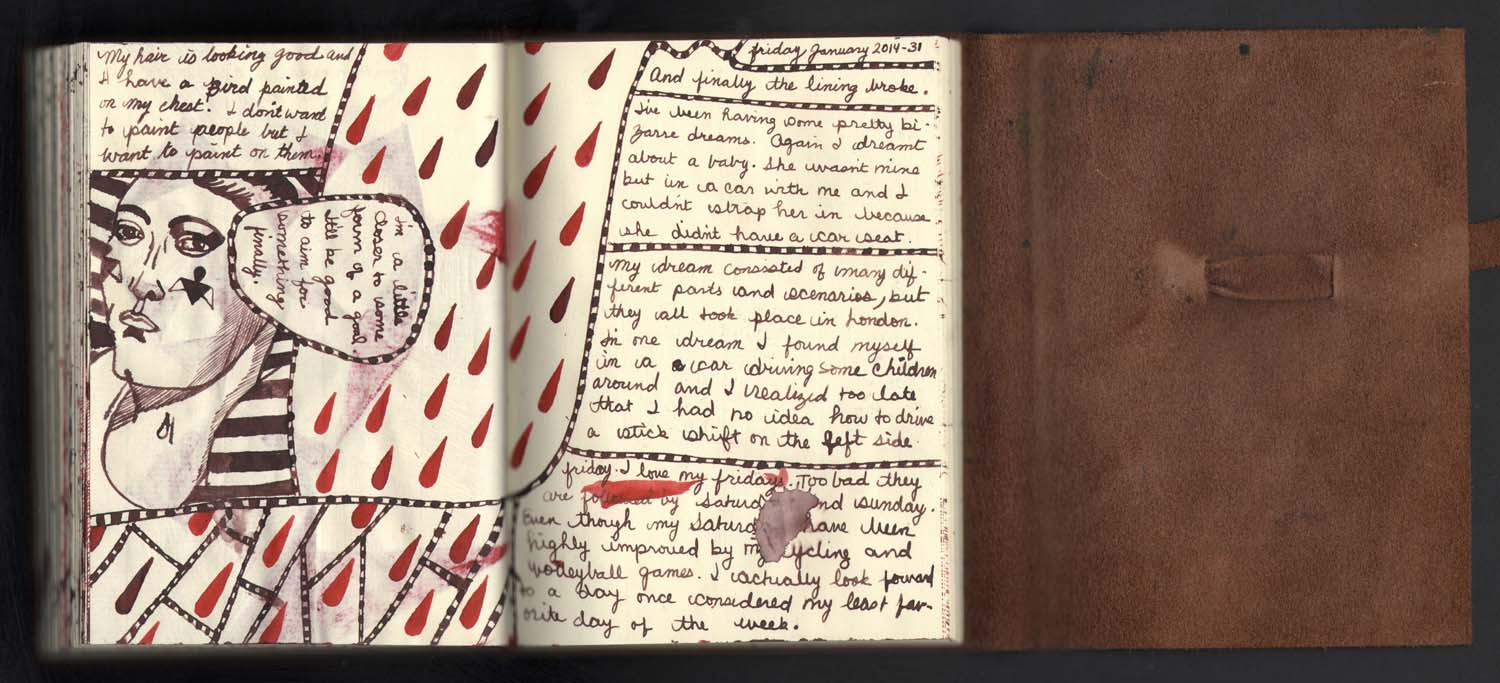 My hair is looking good and
I have a bird painted
on my chest. I don't want
to paint people but I
want to paint on them.
I'm a little
closer to some
form of a goal.
It'll be good
to aim for
something
finally.
friday January 2014-31
And finally the lining broke.
I've been having some pretty bi-
zarre dreams. Again I dreamt
about a baby. She wasn't mine
but in a car with me and I
couldn't strap her in because
she didn't have a car seat.
My dream consisted of many dif-
ferent parts and scenarios, but
they all took place in London.
In one dream I found myself
in a car driving some children
around and I realized too late
that I had no idea how to drive
a stick shift on the left side.
friday. I love my fridays. Too bad they
are followed by saturday and sunday.
Even though my saturdays have been
highly improved by my cycling and
volleyball games. I actually look forward
to a day once considered my least fav-
orite day of the week.